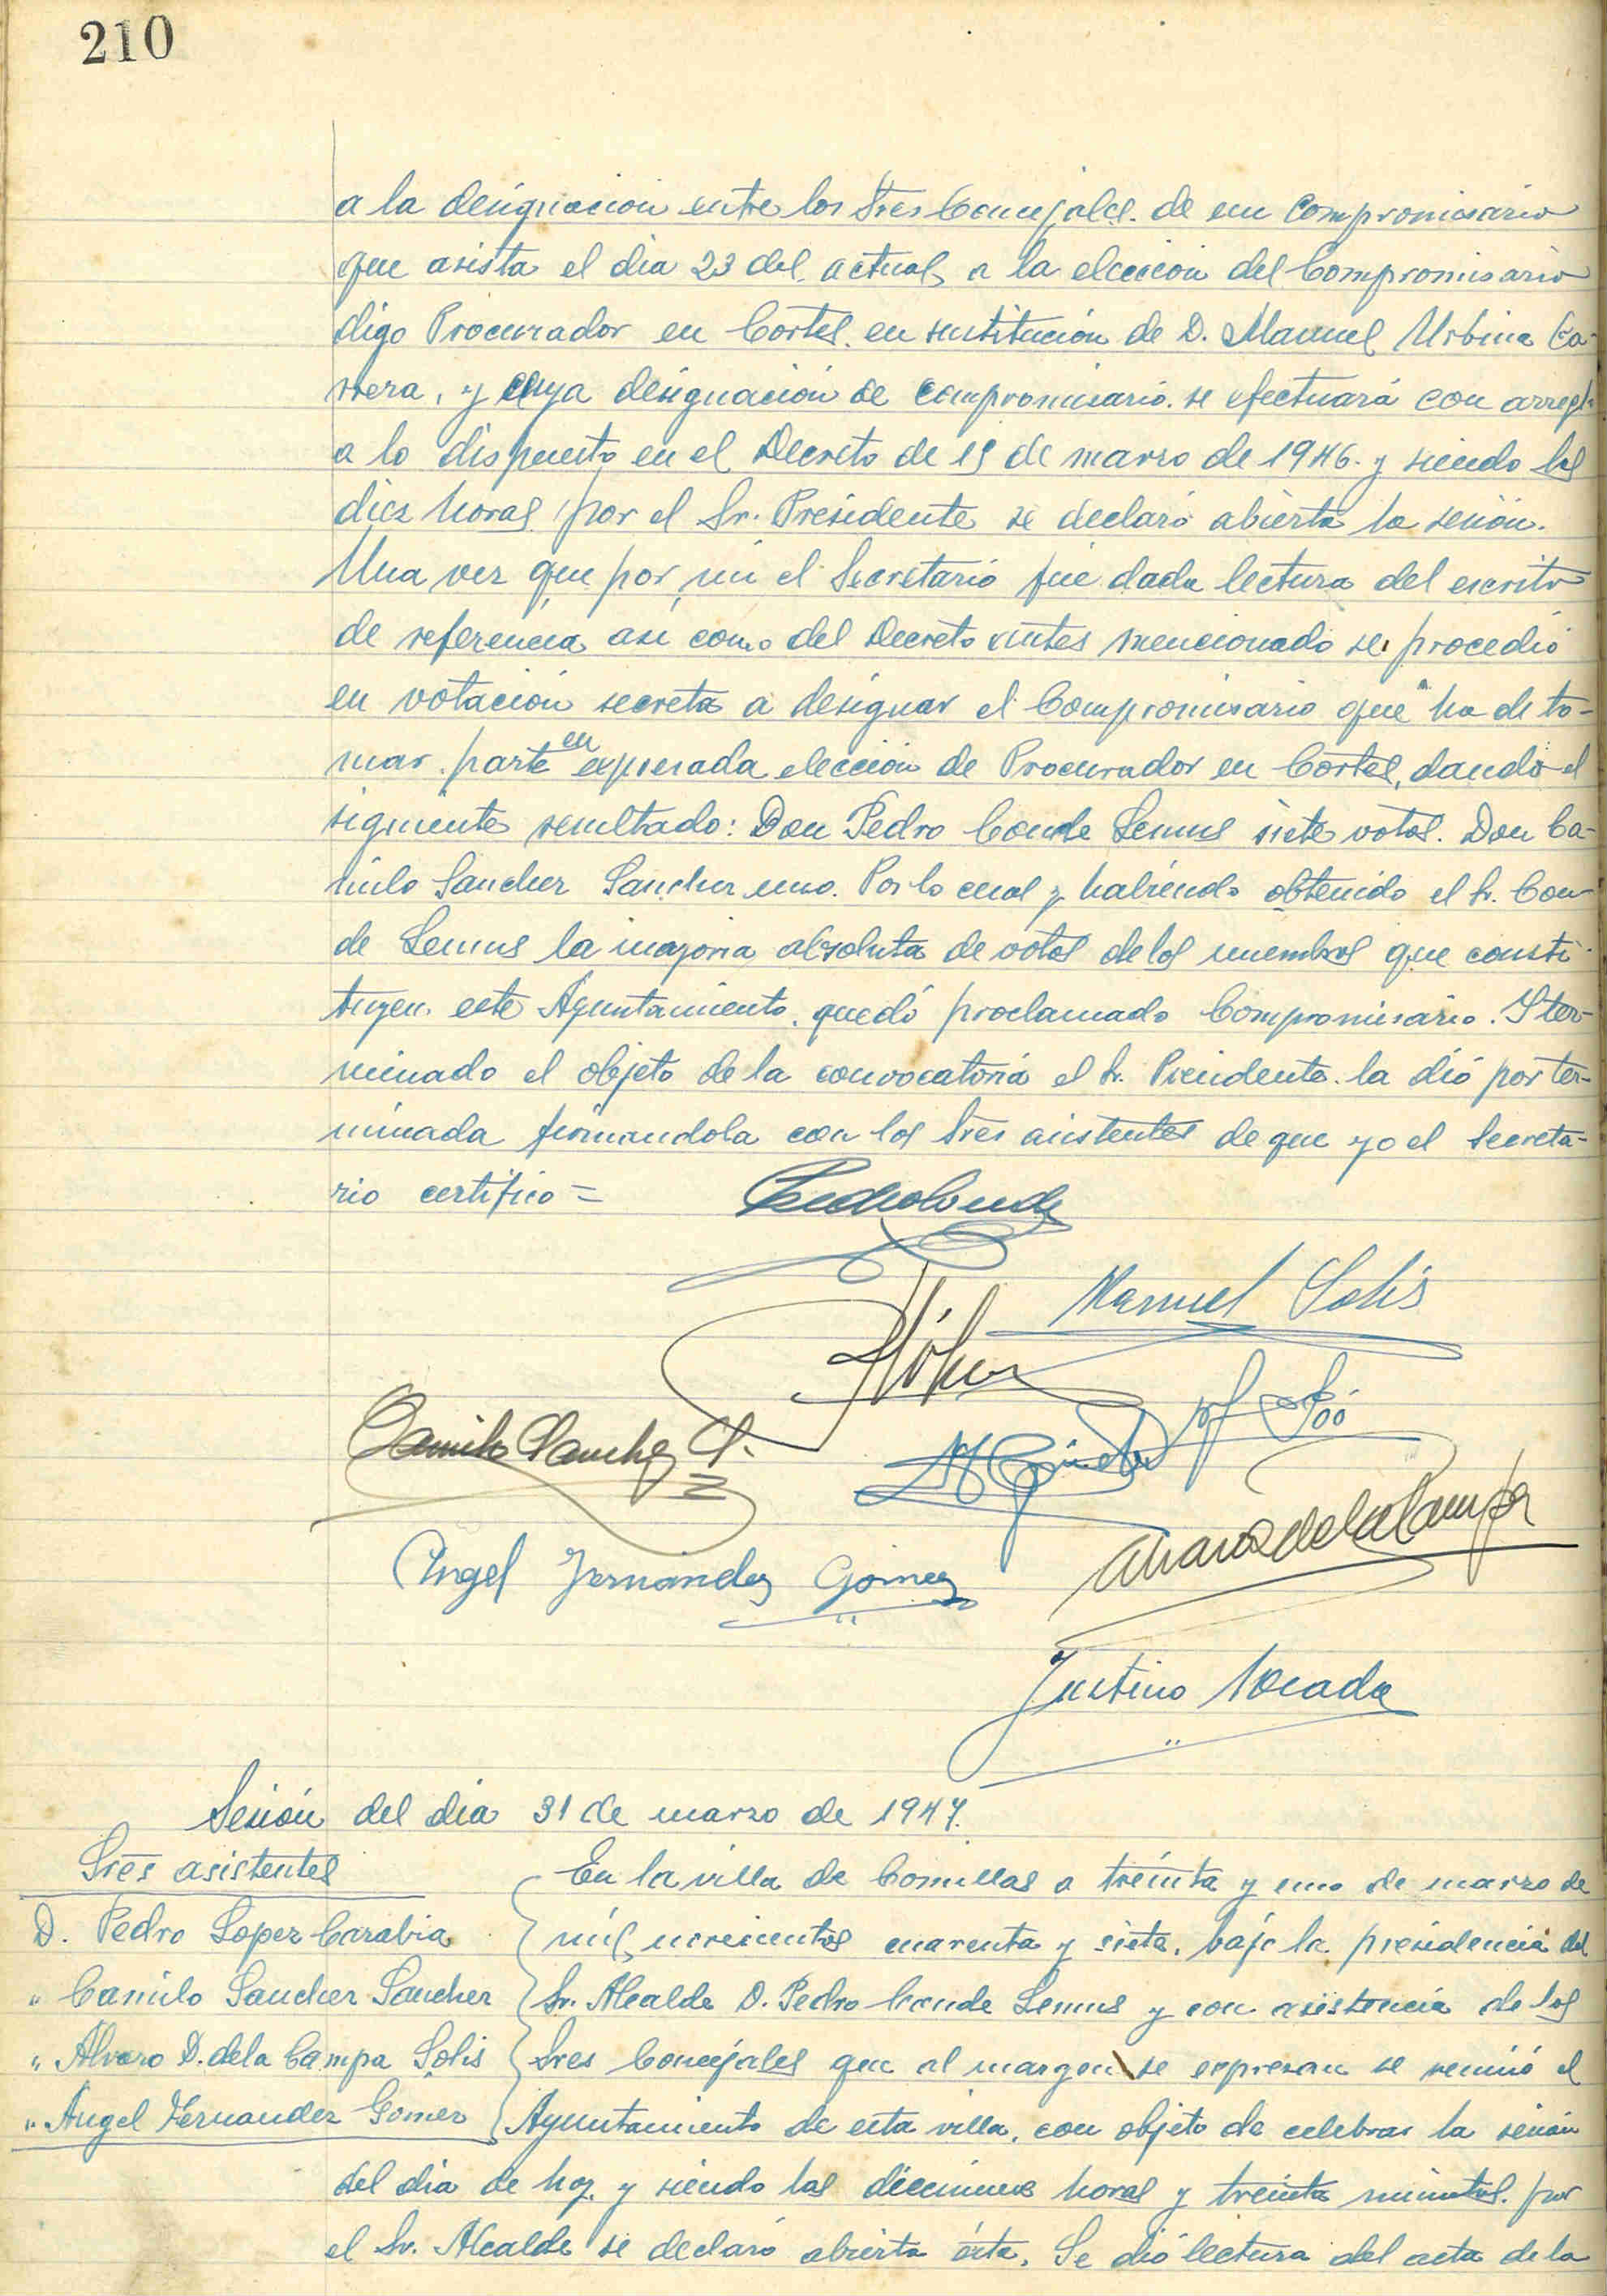 210
a la designacion entre los Sres Concejales. de un Compromisario
que asista el dia 23 del actual, a la eleccion del Compromisario
digo Procurador en Cortes. en sustitución de D. Manuel Urbina Ca-
rrera, y cuya designación de compromisario. se efectuará con arreglo
a lo dispuesto en el Decreto de 19 de marzo de 1946. y siendo las
diez horas por el Sr. Presidente se declaró abierta la sesión.
Una vez que por mi el Secretario fue dada lectura del escrito
de referencia asi como del Decreto antes mencionado se procedió
en votación secreta a designar el Compromisario que ha de to-
mar parte en expresada elección de Procurador en Cortes, dando el
siguiente resultado: Don Pedro Conde Lemus siete votos. Don Ca-
milo Sanchez Sanchez uno. Por lo cual y habiendo obtenido el Sr. Con-
de Lemus la mayoria absoluta de votos de los miembros que consti-
tuyen este Ayuntamiento, quedó proclamado Compromisario. Y ter-
minado el objeto de la convocatoria el Sr. Presidente la dió por ter-
minada firmandola con los Sres asistentes de que yo el Secreta-
rio certifico =
Pedro Conde
Manuel Solis
Camilo Sanchez S.
Angel Fernandez Gomez
Alvaro de la Campa
Justino
Sesión del dia 31 de marzo de 1947.
Sres asistentes
D. Pedro Lopez Carabia
" Camilo Sanchez Sanchez
" Alvaro D. de la Campa Solis
" Angel Fernandez Gomez
En la villa de Comillas a treinta y uno de marzo de
mil novecientos cuarenta y siete, bajo la presidencia del
Sr. Alcalde D. Pedro Conde Lemus y con asistencia de los
Sres Concejales que al margen se expresan se reunió el
Ayuntamiento de esta villa, con objeto de celebrar la sesión
del dia de hoy. y siendo las diecinueve horas y treinta minutos. por
el Sr. Alcalde se declaró abierta ésta. Se dió lectura del acta de la